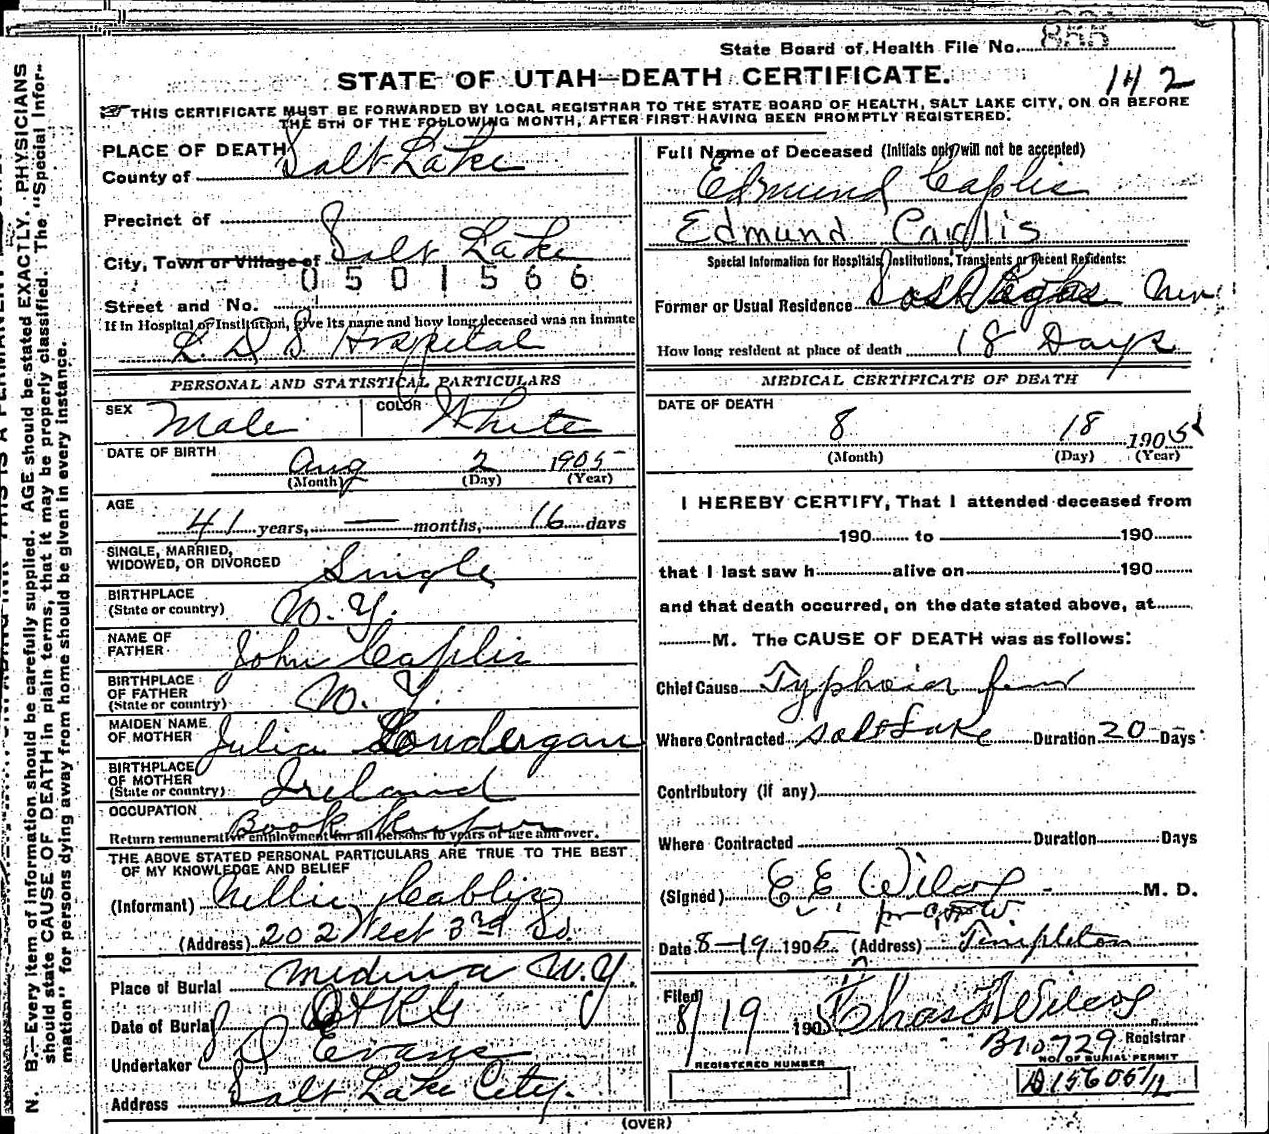 State Board of Health File No. 855
STATE OF UTAH—DEATH CERTIFICATE.
142
THIS CERTIFICATE MUST BE FORWARDED BY LOCAL REGISTRAR TO THE STATE BOARD OF HEALTH, SALT LAKE CITY, ON OR BEFORE
THE 5TH OF THE FOLLOWING MONTH, AFTER FIRST HAVING BEEN PROMPTLY REGISTERED.
PLACE OF DEATH
County of Salt Lake
Precinct of
City, Town or Village of Salt Lake
0501566
Street and No.
If in Hospital or Institution, give its name and how long deceased was an inmate
L. D. S Hospital
PERSONAL AND STATISTICAL PARTICULARS
SEX Male COLOR White
DATE OF BIRTH Aug 2 1905
(Month) (Day) (Year)
AGE 41 years, — months, 16 days
SINGLE, MARRIED,
WIDOWED, OR DIVORCED Single
BIRTHPLACE
(State or country) N.Y.
NAME OF
FATHER John Caplis
BIRTHPLACE
OF FATHER
(State or country) N.Y.
MAIDEN NAME
OF MOTHER Julia Londergan
BIRTHPLACE
OF MOTHER
(State or country) Ireland
OCCUPATION Book Keeper
Return remunerative employment for all persons 10 years of age and over.
THE ABOVE STATED PERSONAL PARTICULARS ARE TRUE TO THE BEST
OF MY KNOWLEDGE AND BELIEF
(Informant) Nellie Cablis
(Address) 202 West 3rd So.
Place of Burial Medina N.Y.
Date of Burial
Undertaker J D Evans
Address Salt Lake City.
Full Name of Deceased (Initials only will not be accepted)
Edmund Caplis
Edmund Caplis
Special Information for Hospitals, Institutions, Transients or Recent Residents:
Former or Usual Residence Las Vegas Nev
How long resident at place of death 18 Days
MEDICAL CERTIFICATE OF DEATH
DATE OF DEATH
8 18 1905
(Month) (Day) (Year)
I HEREBY CERTIFY, That I attended deceased from
190 to 190
that I last saw h alive on 190
and that death occurred, on the date stated above, at
M. The CAUSE OF DEATH was as follows:
Chief Cause Typhoid fever
Where Contracted Salt Lake Duration 20 Days
Contributory (If any)
Where Contracted Duration Days
(Signed) E E Wilcox M. D.
Date 8-19 1905 (Address) Templeton
Filed 8/19 190 Chas F Wilcox
B10729 Registrar
REGISTERED NUMBER
NO. OF BURIAL PERMIT
(OVER)
N. B.—Every item of information should be carefully supplied. AGE should be stated EXACTLY. PHYSICIANS
should state CAUSE OF DEATH in plain terms, that it may be properly classified. The "Special Infor-
mation" for persons dying away from home should be given in every instance.